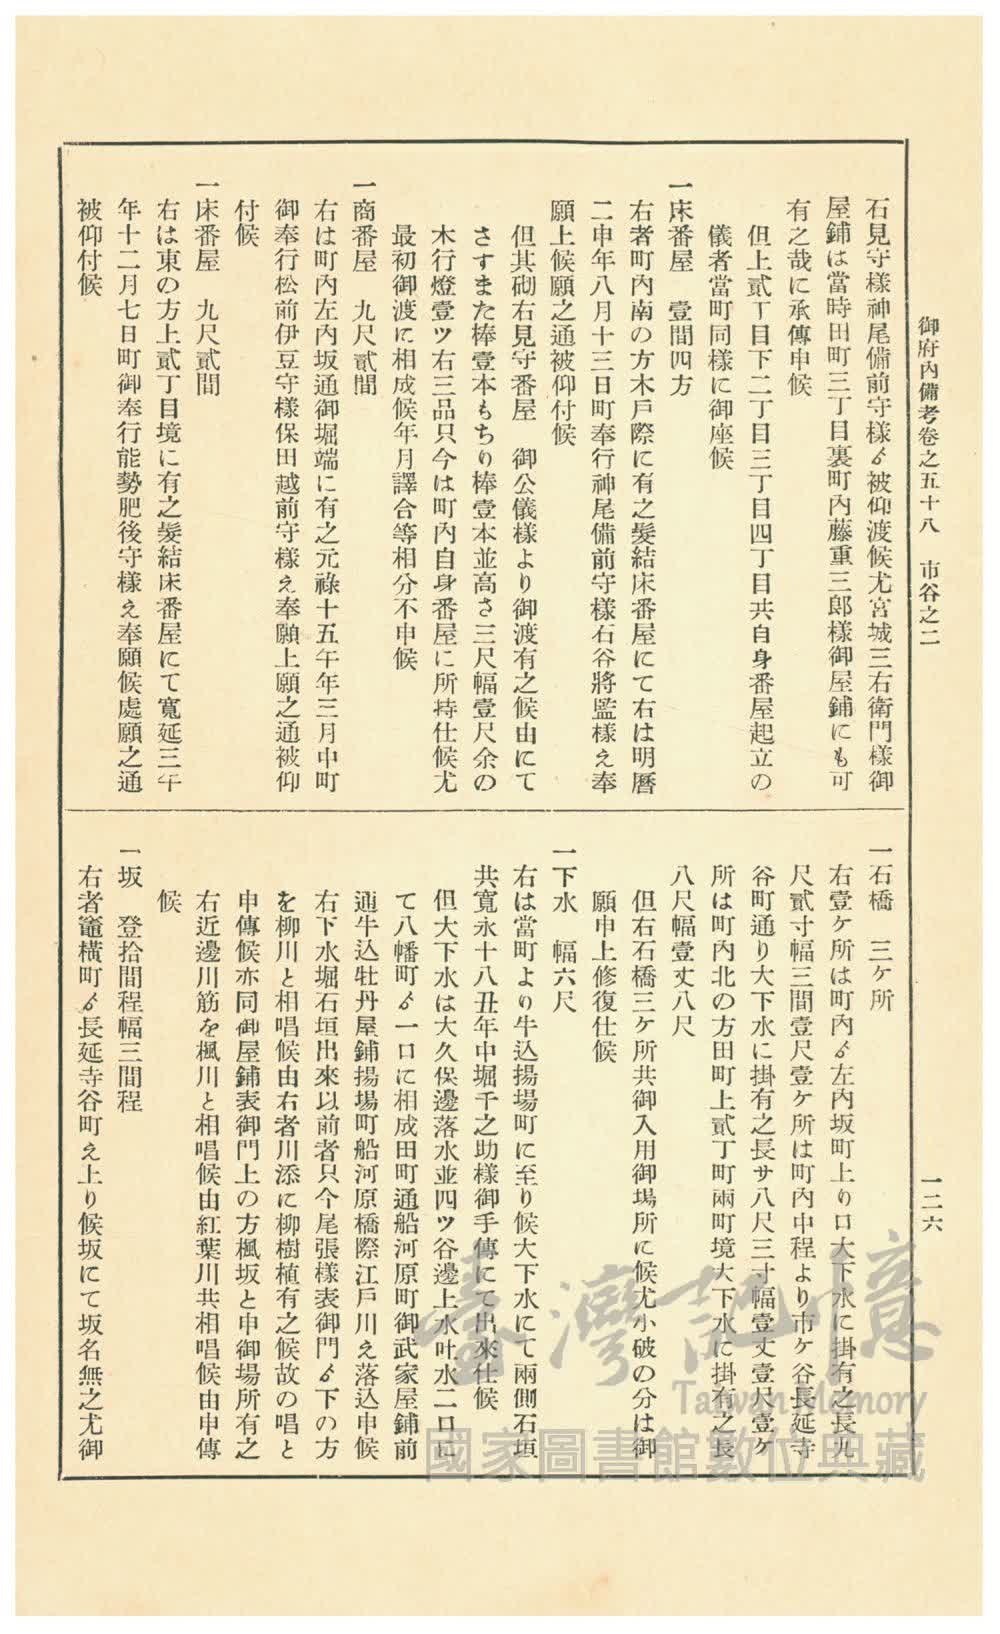 御府內備考卷之五十八　市谷之二
一二六
石見守樣神尾備前守樣ゟ被仰渡候尤宮城三右衛門樣御
屋鋪は當時田町三丁目裏町內藤重三郎樣御屋鋪にも可
有之哉に承傳申候
但上貳丁目下二丁目三丁目四丁目共自身番屋起立の
儀者當町同樣に御座候
一床番屋　壹間四方
右者町內南の方木戶際に有之髮結床番屋にて右は明曆
二申年八月十三日町奉行神尾備前守樣石谷將監樣え奉
願上候願之通被仰付候
但其砌右見守番屋　御公儀樣より御渡有之候由にて
さすまた棒壹本もちり棒壹本並高さ三尺幅壹尺余の
木行燈壹ツ右三品只今は町內自身番屋に所持仕候尤
最初御渡に相成候年月譯合等相分不申候
一商番屋　九尺貳間
右は町內左內坂通御堀端に有之元祿十五午年三月中町
御奉行松前伊豆守樣保田越前守樣え奉願上願之通被仰
付候
一床番屋　九尺貳間
右は東の方上貳丁目境に有之髮結床番屋にて寬延三午
年十二月七日町御奉行能勢肥後守樣え奉願候處願之通
被仰付候
一石橋　三ケ所
右壹ケ所は町內ゟ左內坂町上り口大下水に掛有之長九
尺貳寸幅三間壹尺壹ケ所は町內中程より市ケ谷長延寺
谷町通り大下水に掛有之長サ八尺三寸幅壹丈壹尺壹ケ
所は町內北の方田町上貳丁町兩町境大下水に掛有之長
八尺幅壹丈八尺
但右石橋三ケ所共御入用御場所に候尤小破の分は御
願申上修復仕候
一下水　幅六尺
右は當町より牛込揚場町に至り候大下水にて兩側石垣
共寬永十八丑年中堀千之助樣御手傳にて出來仕候
但大下水は大久保邊落水並四ツ谷邊上水吐水二口に
て八幡町ゟ一口に相成田町通船河原町御武家屋鋪前
通牛込牡丹屋鋪揚場町船河原橋際江戶川え落込申候
右下水堀石垣出來以前者只今尾張樣表御門ゟ下の方
を柳川と相唱候由右者川添に柳樹植有之候故の唱と
申傳候亦同御屋鋪表御門上の方楓坂と申御場所有之
右近邊川筋を楓川と相唱候由紅葉川共相唱候由申傳
候
一坂　登拾間程幅三間程
右者竈橫町ゟ長延寺谷町え上り候坂にて坂名無之尤御
臺灣記憶
Taiwan Memory
國家圖書館數位典藏